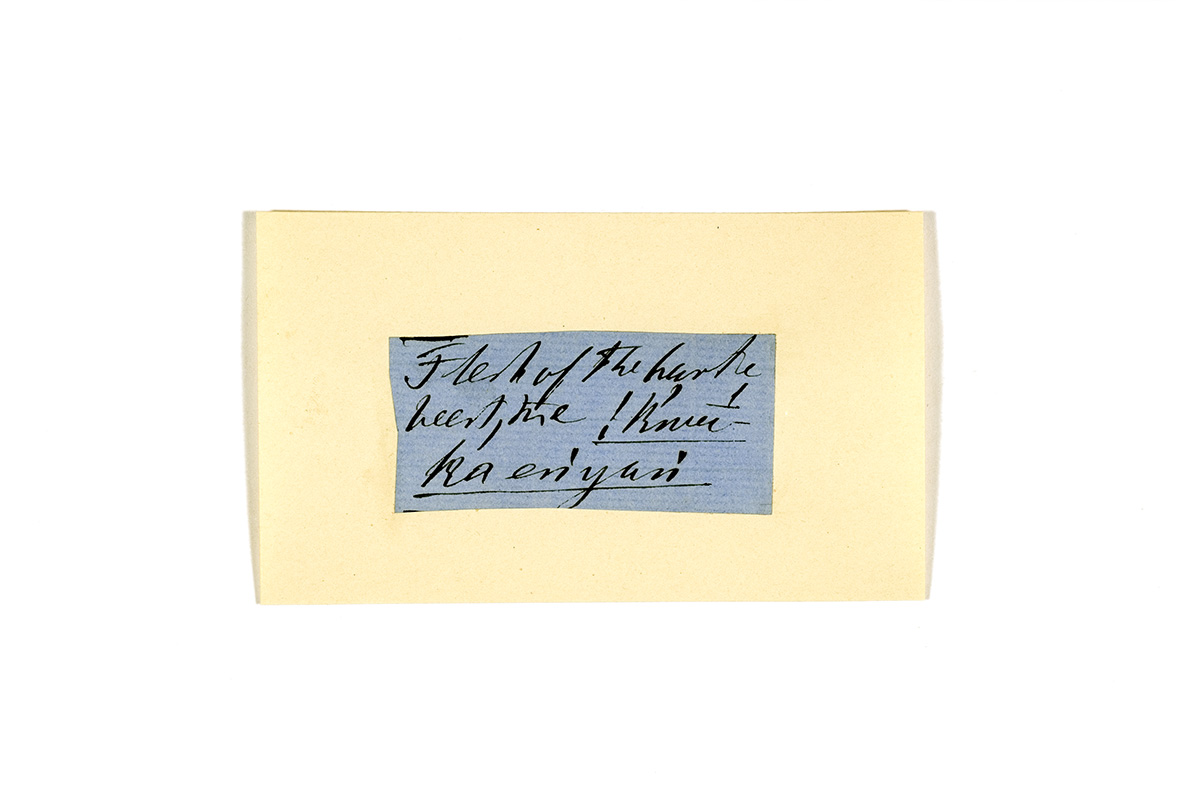 Flesh of the harte
beest, the
ka eńyań